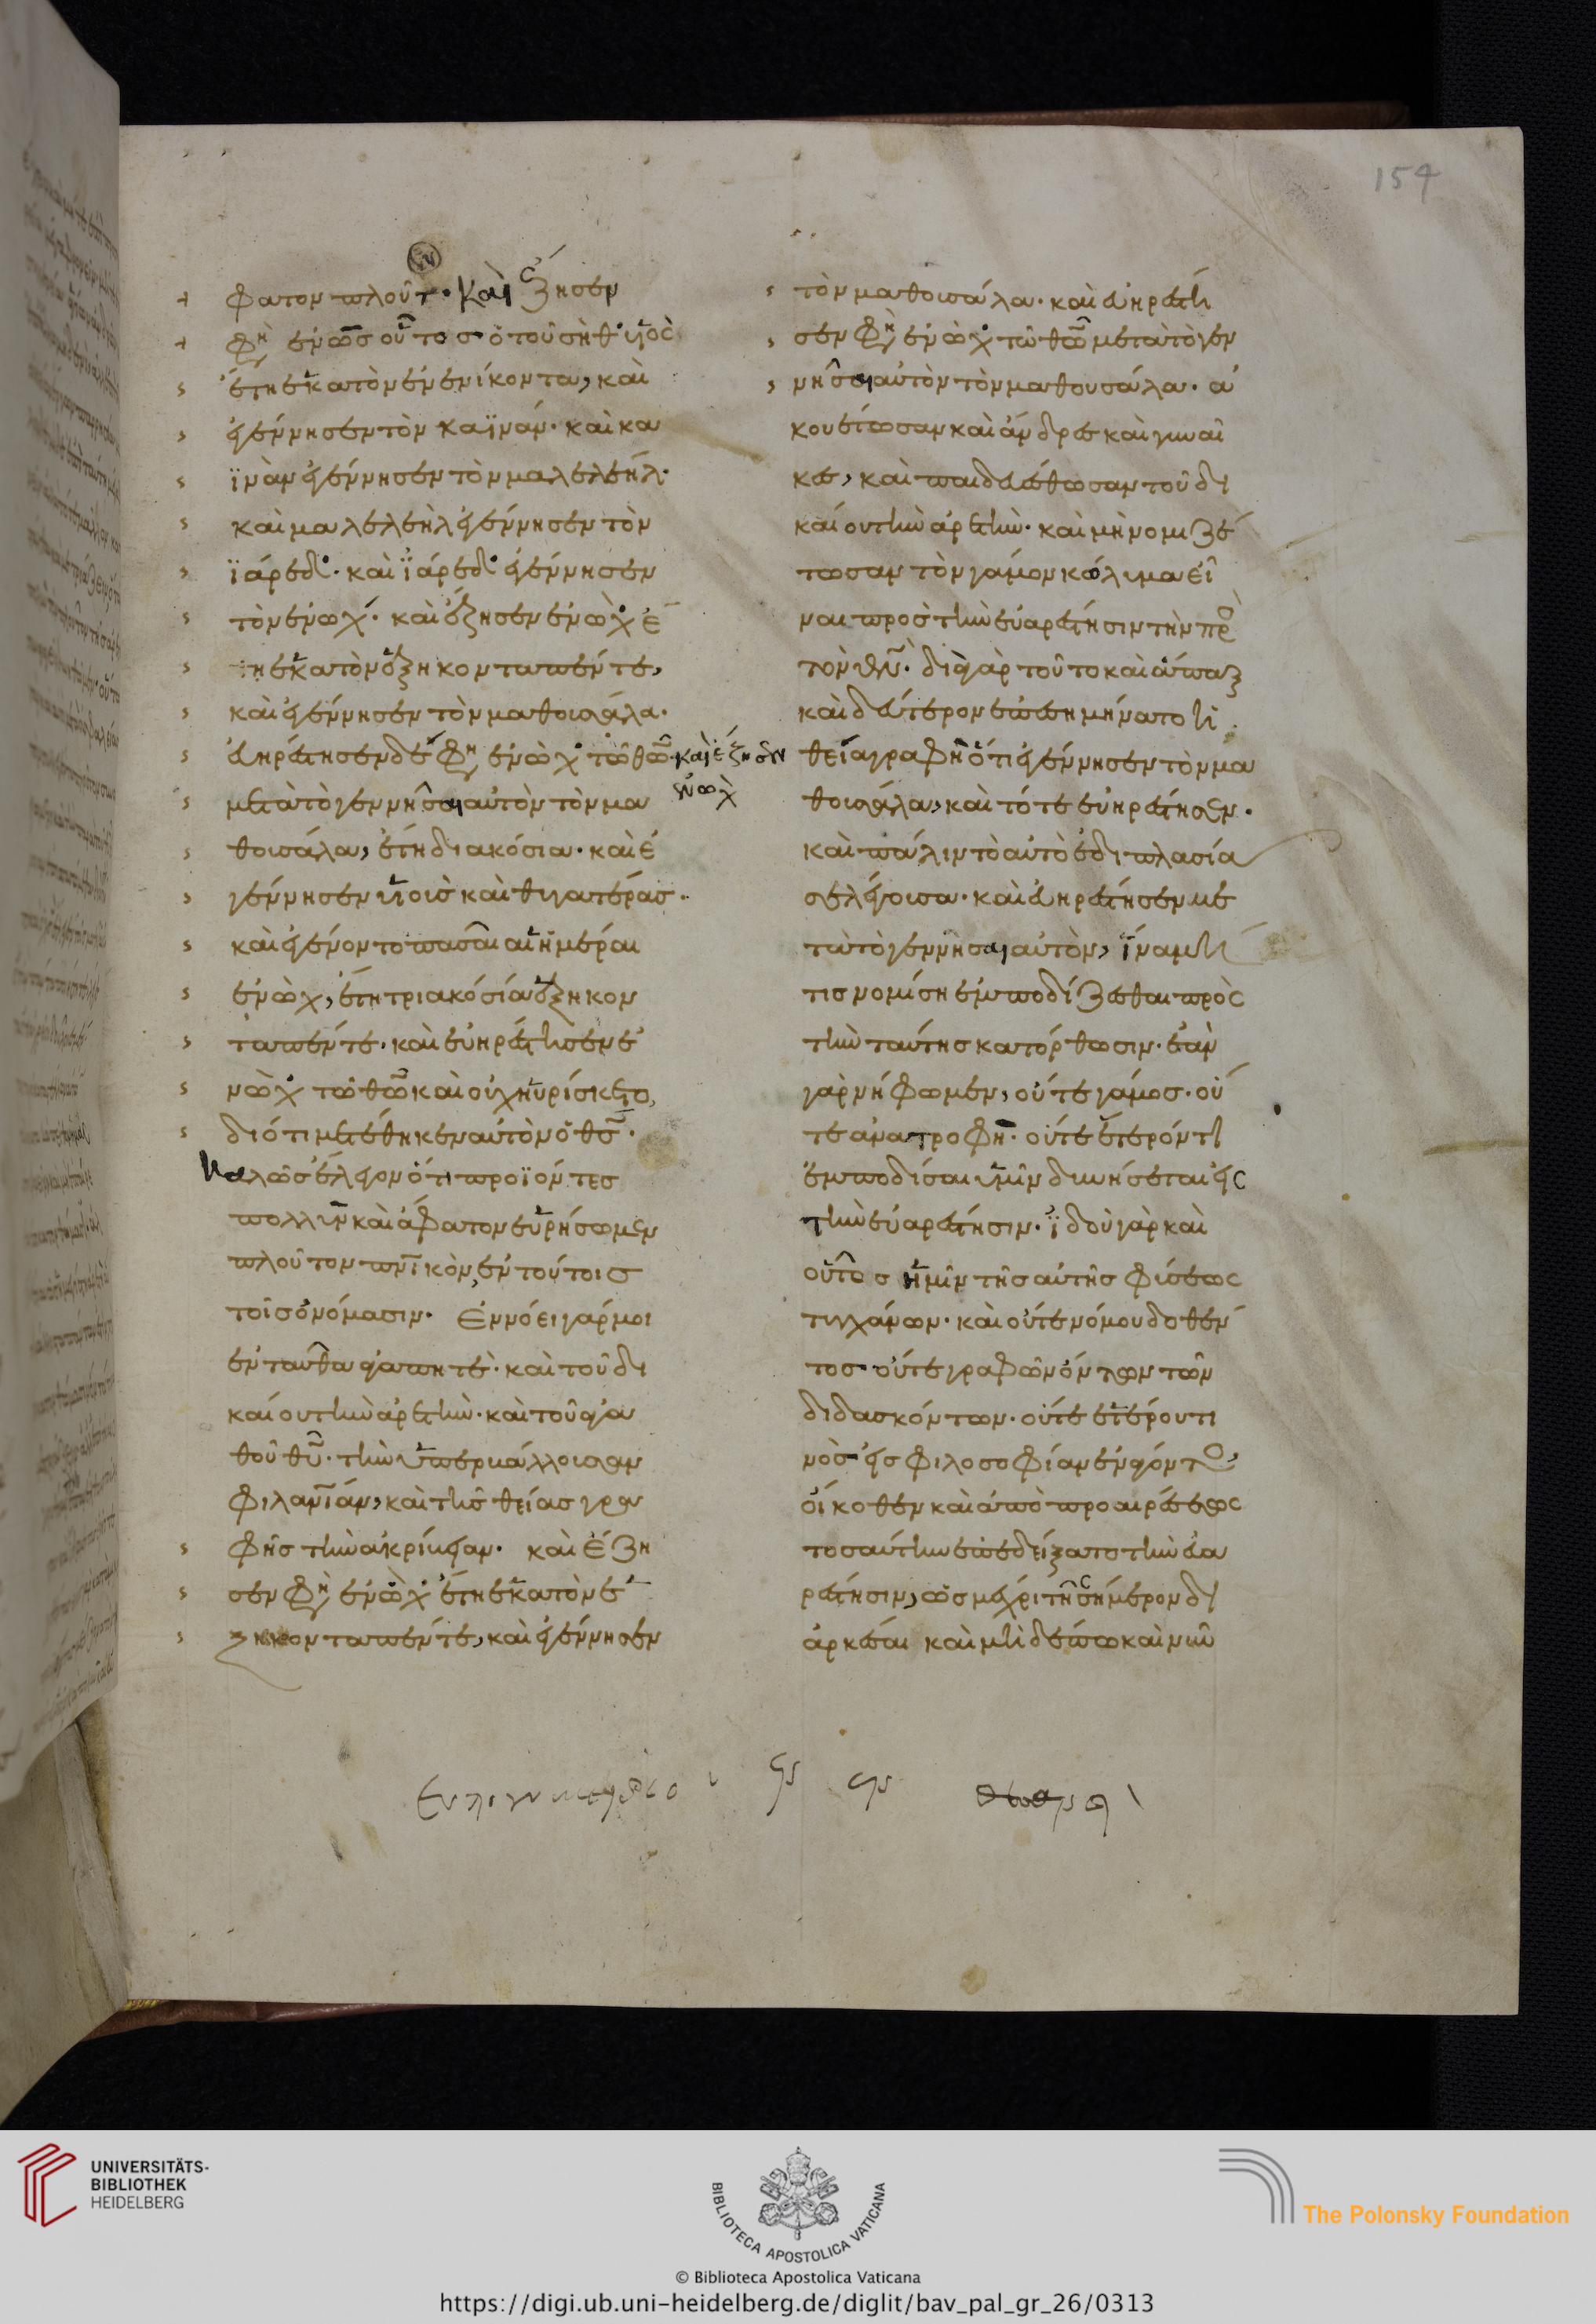 154
φατον πλοῦτ. καὶ ἔζησεν
φη ενὼς οὗτος ὁ τοῦ σὴθ υἱὸς
ἔτη ἑκατὸν ἐνενίκοντα, καὶ
ἐγέννησεν τὸν καϊνάν· καὶ κα
ϊνὰν ἐγέννησεν τὸν μαλελεήλ·
καὶ μαλελεὴλ ἐγέννησεν τὸν
ϊάρεδ· καὶ ϊάρεδ ἐγέννησεν
τὸν ενώχ· καὶ ἔζησεν ενὼχ ἔ
τη ἑκατὸν ἑξηκονταπέντε,
καὶ ἐγέννησεν τὸν μαθουσάλα·
εὐηρέστησεν δέ φη ενὼχ τῶ θω· καὶ ἔζησεν
ενωχ
μετὰ τὸ γεννῆσαι αὐτὸν τὸν μα
θουσάλα, ἔτη διακόσια· καὶ ἐ
γέννησεν υἱοὺς καὶ θυγατέρας·
καὶ ἐγένοντο πᾶσαι αἱ ἡμέραι
ενὼχ, ἔτη τριακόσια ἑξηκον
ταπέντε· καὶ εὐηρέστησεν ἐ
νὼχ τῶ θω καὶ οὐχ ηὑρίσκετο,
διότι μετέθηκεν αὐτὸν ὁ θς·
καλῶς ἔλεγον ὅτι προϊόντες
πολλὺν καὶ ἄφατον εὑρήσωμεν
πλοῦτον πνικὸν, ἐν τούτοις
τοῖς ὀνόμασιν· Εννόει γάρ μοι
ἐνταῦθα ἀγαπητέ· καὶ τοῦ δι
καίου τὴν ἀρετὴν· καὶ τοῦ ἀγα
θοῦ θυ· τὴν ὑπερβάλλουσαν
φιλανίαν, καὶ τῆς θείας γρα
φῆς τὴν ἀκρίβειαν· καὶ ἔζη
σεν φη ενὼχ ἔτη ἑκατὸν ἑ
ξηκονταπέντε, καὶ ἐγέννησεν
τὸν μαθουσάλα· καὶ εὐηρέστη
σεν φη ενὼχ τῶ θω μετὰ τὸ γεν
νῆσαι αὐτὸν τὸν μαθουσάλα· ἀ
κουέτωσαν καὶ ἄνδρες καὶ γυναῖ
κες, καὶ παιδευέσθωσαν τοῦ δι
καίου τὴν ἀρετὴν· καὶ μὴ νομιζέ
τωσαν τὸν γάμον κώλυμα εἶ
ναι πρὸς τὴν εὐαρέστησιν τὴν πρ
τὸν θν· διὰ γὰρ τοῦτο καὶ ἅπαξ
καὶ δεύτερον ἐπεσημήνατο ἡ
θεία γραφὴ ὅτι ἐγέννησεν τὸν μα
θουσάλα, καὶ τότε εὐηρέστησεν·
καὶ πάλιν τὸ αὐτὸ ἐδιπλασία
σε λέγουσα· καὶ εὐηρέστησεν με
τὰ τὸ γεννῆσαι αὐτὸν, ἵνα μή
τις νομίση ἐμποδίζεσθαι πρὸς
τὴν ταύτης κατόρθωσιν· ἐὰν
γὰρ νήφωμεν, οὔτε γάμος· οὔ
τε ἀνατροφὴ· οὔτε ἕτερόν τι
ἐμποδίσαι ὑμῖν δυνήσεται εἰς
τὴν εὐαρέστησιν· ϊδοὺ γὰρ καὶ
οὗτος ἡμῖν τῆς αὐτῆς φύσεως
τυγχάνων· καὶ οὔτε νόμου δοθέν
τος οὔτε γραφῶν ὄντων τῶν
διδασκόντων· οὔτε ἑτέρου τι
νὸς εἰς φιλοσοφίαν ἐνάγοντος,
οἴκοθεν καὶ ἀπὸ προαιρέσεως
τοσαύτην ἐπεδείξατο τὴν εὐα
ρέστησιν, ὡς μέχρι τῆς σήμερον δι
αρκέσαι καὶ μηδέπω καὶ νῦν
UNIVERSITÄTS-
BIBLIOTHEK
HEIDELBERG
BIBLIOTECA APOSTOLICA VATICANA
The Polonsky Foundation
© Biblioteca Apostolica Vaticana
https://digi.ub.uni-heidelberg.de/diglit/bav_pal_gr_26/0313